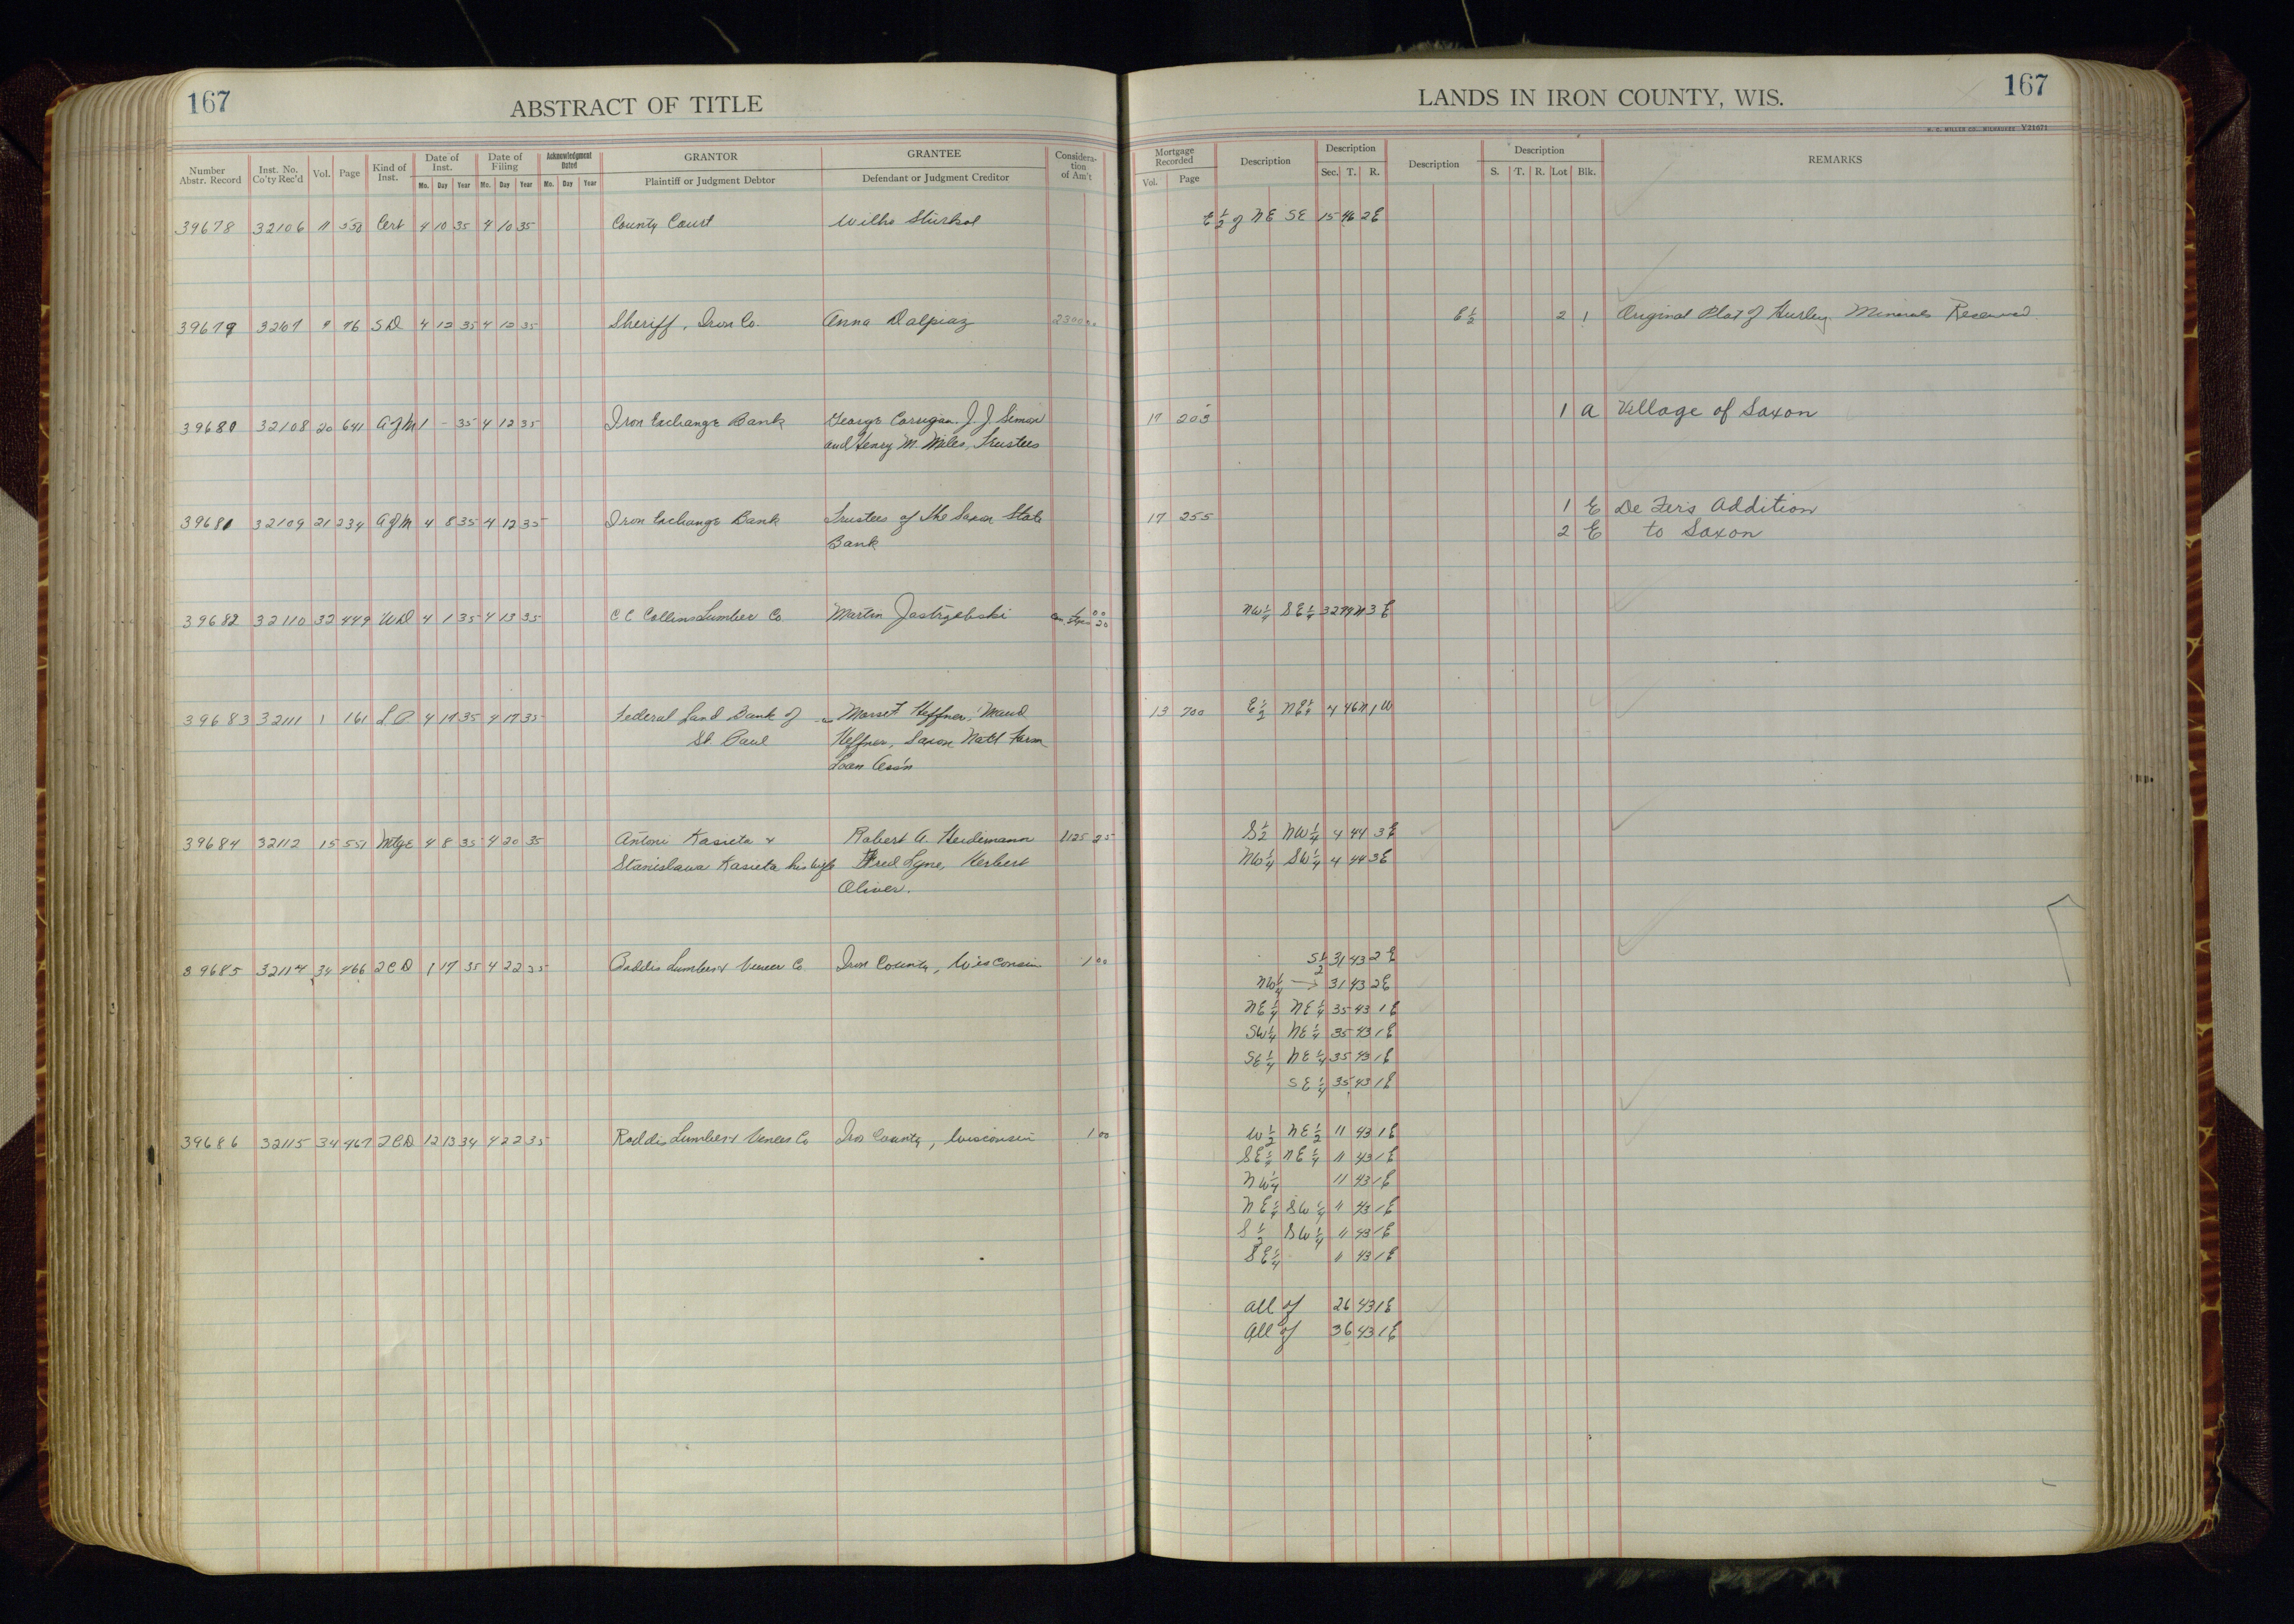 167
ABSTRACT OF TITLE
LANDS IN IRON COUNTY, WIS.
167
H. C. MILLER CO., MILWAUKEE V21671
Number Abstr. Record | Inst. No. Co'ty Rec'd | Vol. | Page | Kind of Inst. | Date of Inst. Mo. Day Year | Date of Filing Mo. Day Year | Acknowledgment Dated Mo. Day Year | GRANTOR Plaintiff or Judgment Debtor | GRANTEE Defendant or Judgment Creditor | Consideration of Am't | Mortgage Recorded Vol. Page | Description | Description Sec. T. R. | Description | Description S. T. R. Lot Blk. | REMARKS
39678 32106 11 550 Cert 4 10 35 4 10 35 County Court Wilho E 1/2 of NE SE 15 46 2E
39679 3267 9 76 SD 4 12 35 4 12 35 Sheriff, Iron Co. Anna Dalpiaz 2300 00 E 1/2 2 1 Original Plat of Hurley Minerals Reserved
39680 32108 20 641 A of M 1 - 35 4 12 35 Iron Exchange Bank George Corrigan, J. J. Simon 17 203 1 A Village of Saxon
and Henry M. Miles, Trustees
39681 32109 21 234 A of M 4 8 35 4 12 35 Iron Exchange Bank Trustees of the Saxon State 17 255 1 E De Fer's Addition
Bank 2 E to Saxon
39682 32110 32 449 WD 4 1 35 4 13 35 C C Collins Lumber Co. Martin Jastrzebski 1 00 NW 1/4 SE 1/4 32 44N 3E
39683 32111 1 161 4 17 35 4 17 35 Federal Land Bank of Heffner, Maud 13 700 E 1/2 NE 1/4 4 46N 1W
St. Paul Heffner, Saxon Nat'l Farm
Loan Ass'n
39684 32112 15 551 Mtge 4 8 35 4 20 35 Antoni Kasieta & Robert A. Heidemann 1125 25 S 1/2 NW 1/4 4 44 3E
Stanislawa Kasieta his wife Fred Lyne, Herbert NW 1/4 SW 1/4 4 44 3E
Oliver.
39685 32114 34 466 2CD 1 17 35 4 22 35 Roddis Lumber & Veneer Co Iron County, Wisconsin 1 00 S 1/2 31 43 2E
NW 1/4 31 43 2E
NE 1/4 NE 1/4 35 43 1E
SW 1/4 NE 1/4 35 43 1E
SE 1/4 NE 1/4 35 43 1E
SE 1/4 35 43 1E
39686 32115 34 467 2CD 12 13 34 4 22 35 Roddis Lumber & Veneer Co Iron County, Wisconsin 1 00 W 1/2 NE 1/2 11 43 1E
SE 1/4 NE 1/4 11 43 1E
NW 1/4 11 43 1E
NE 1/4 SW 1/4 11 43 1E
S 1/2 SW 1/4 11 43 1E
SE 1/4 11 43 1E
All of 26 43 1E
All of 36 43 1E